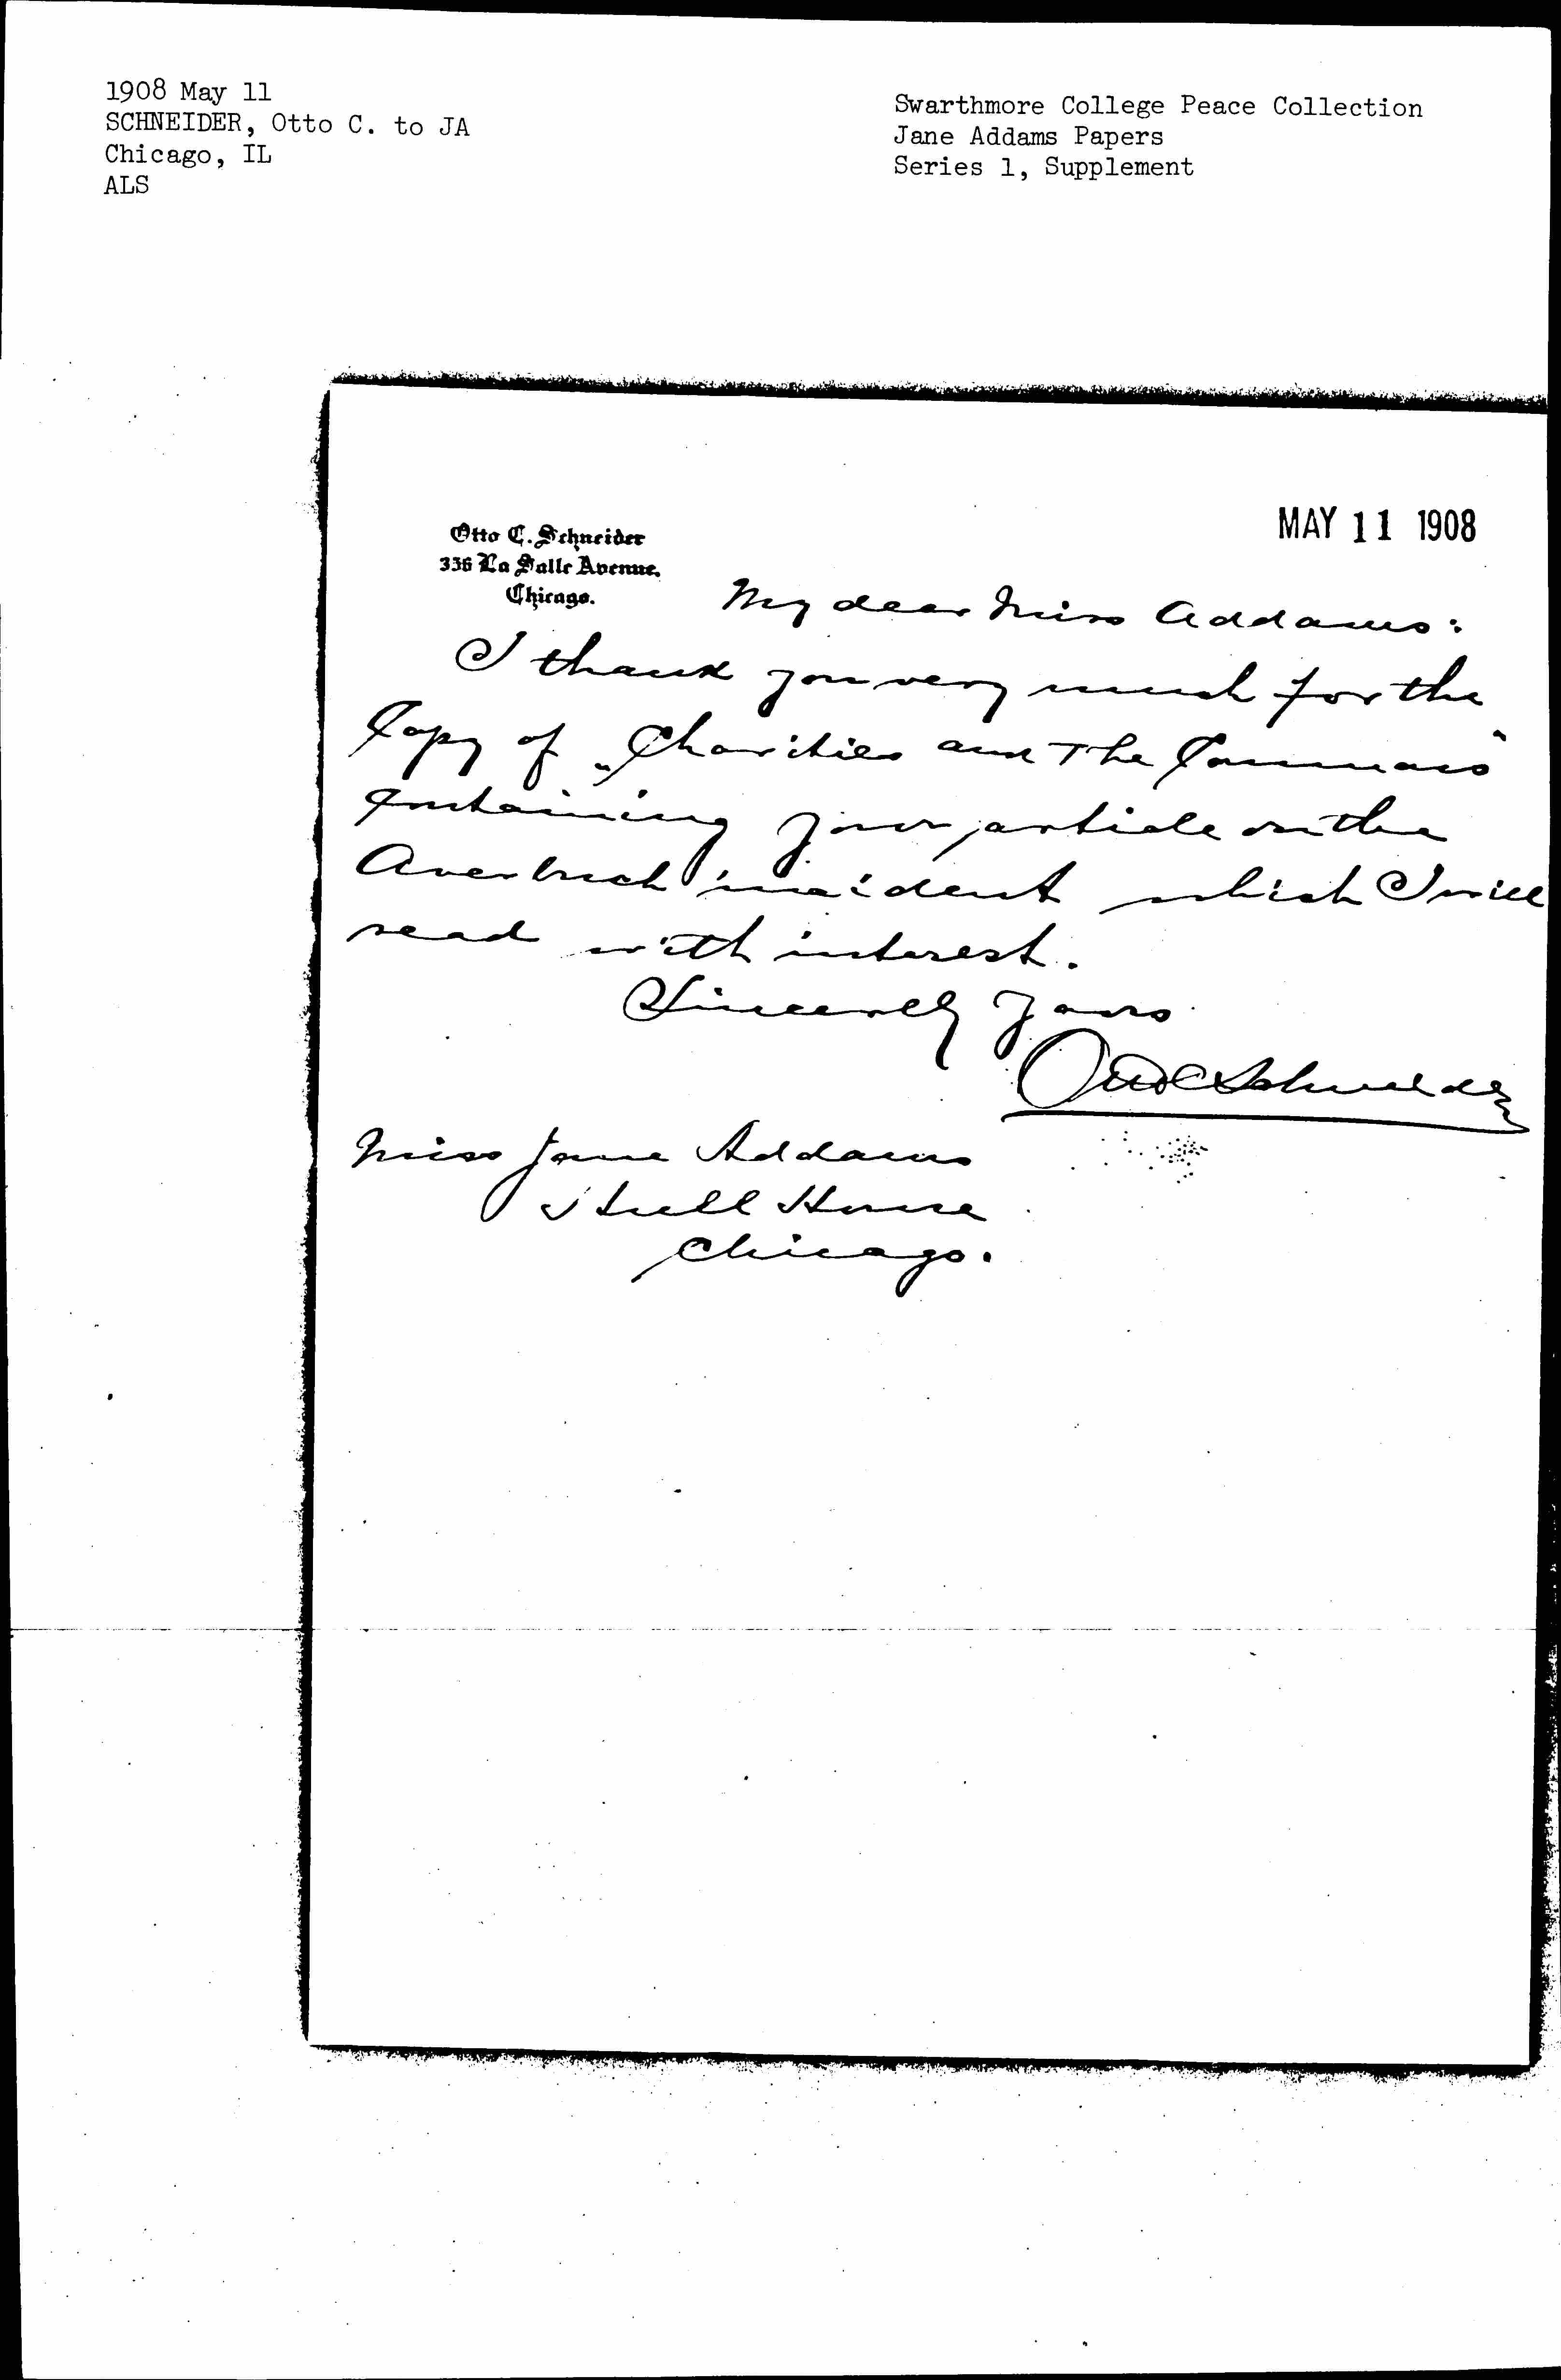 1908 May 11
SCHNEIDER, Otto C. to JA
Chicago, IL
ALS
Swarthmore College Peace Collection
Jane Addams Papers
Series 1, Supplement
MAY 11 1908
Otto C. Schneider
336 La Salle Avenue.
Chicago.
My dear Miss Addams:
I thank you very much for the
Copy of „Charities and The Commons"
Containing your article on the
Averbuch incident which I will
read with interest.
Sincerely Yours
Otto C Schneider
Miss Jane Addams
Hull House
Chicago.